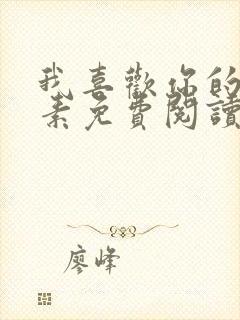 我喜歡你的
素免費閱讀
廖峰